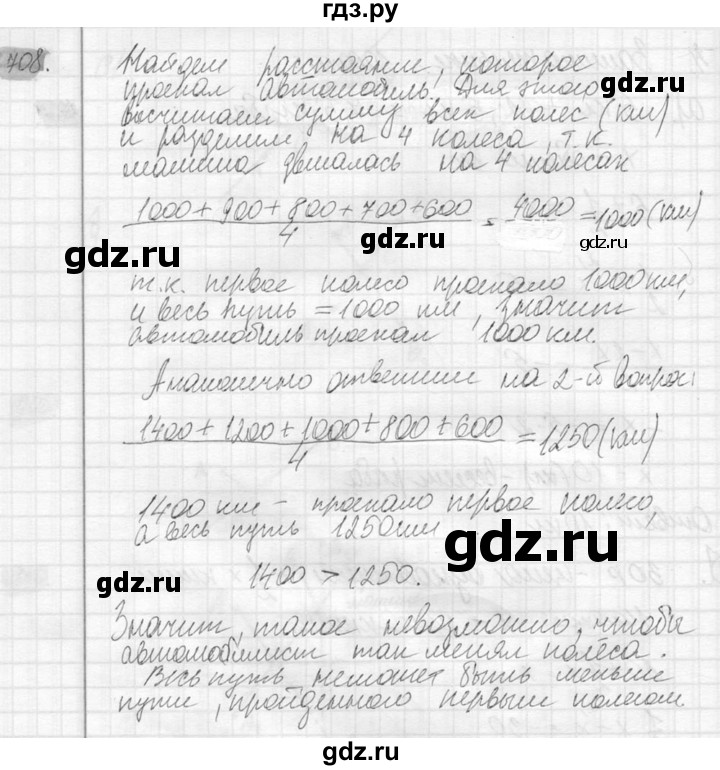 гдз.ру
708. Найдем расстояние, которое
проехал автомобиль. Для этого
gdz.ru
посчитаем сумму всех колес (км)
и разделим на 4 колеса, т.к.
gdz.ru
машина двигалась на 4 колесах
1000 + 900 + 800 + 700 + 600 / 4 = 4000 = 1000 (км)
gdz.ru gdz.ru
gdz.ru
т.к. первое колесо проехало 1000 км,
и весь путь = 1000 км, значит
автомобиль проехал 1000 км.
gdz.ru
Аналогично ответим на 2-й вопрос:
1400 + 1200 + 1000 + 800 + 600 / 4 = 1250 (км)
gdz.ru
1400 км – проехало первое колесо,
а весь путь 1250 км
gdz.ru
1400 > 1250.
gdz.ru gdz.ru
Значит, такое невозможно, чтобы
автомобилист так менял колёса.
Весь путь не может быть меньше
пути, пройденного первым колесом.
gdz.ru